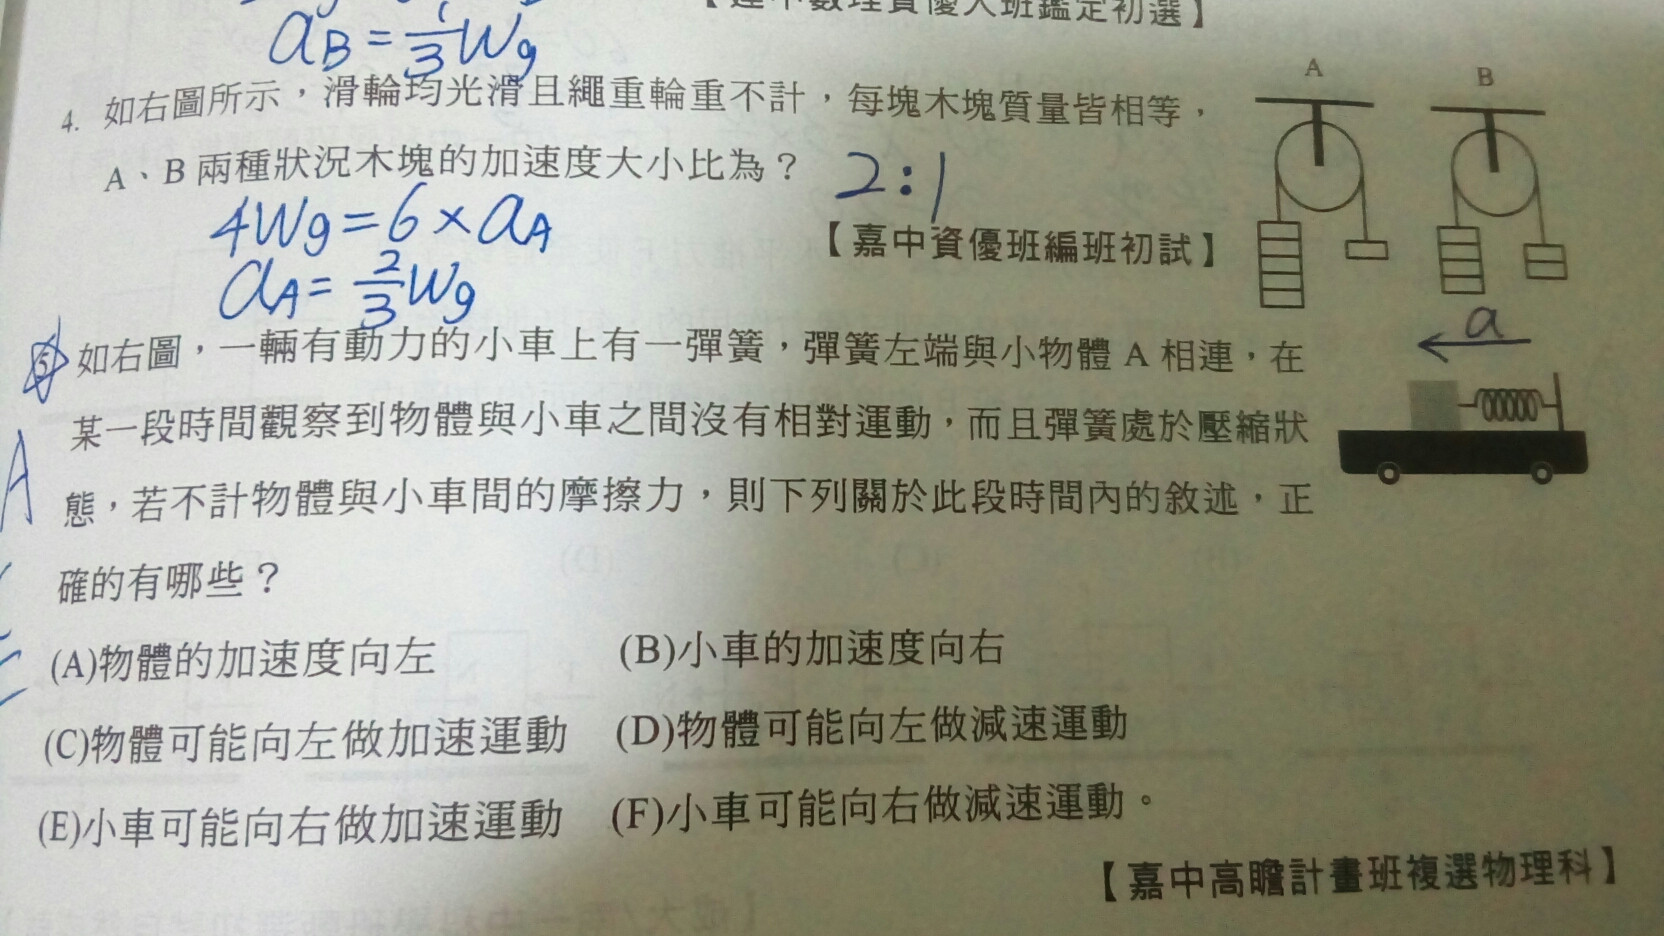 【連中數理資優人班鑑定初選】
aB = 1/3 Wg
4. 如右圖所示，滑輪均光滑且繩重輪重不計，每塊木塊質量皆相等，
A、B 兩種狀況木塊的加速度大小比為？ 2:1
4Wg = 6 × aA
【嘉中資優班編班初試】
aA = 2/3 Wg
A
B
a
5 如右圖，一輛有動力的小車上有一彈簧，彈簧左端與小物體 A 相連，在
某一段時間觀察到物體與小車之間沒有相對運動，而且彈簧處於壓縮狀
態，若不計物體與小車間的摩擦力，則下列關於此段時間內的敘述，正
確的有哪些？
A
(A)物體的加速度向左 (B)小車的加速度向右
(C)物體可能向左做加速運動 (D)物體可能向左做減速運動
(E)小車可能向右做加速運動 (F)小車可能向右做減速運動。
【嘉中高瞻計畫班複選物理科】